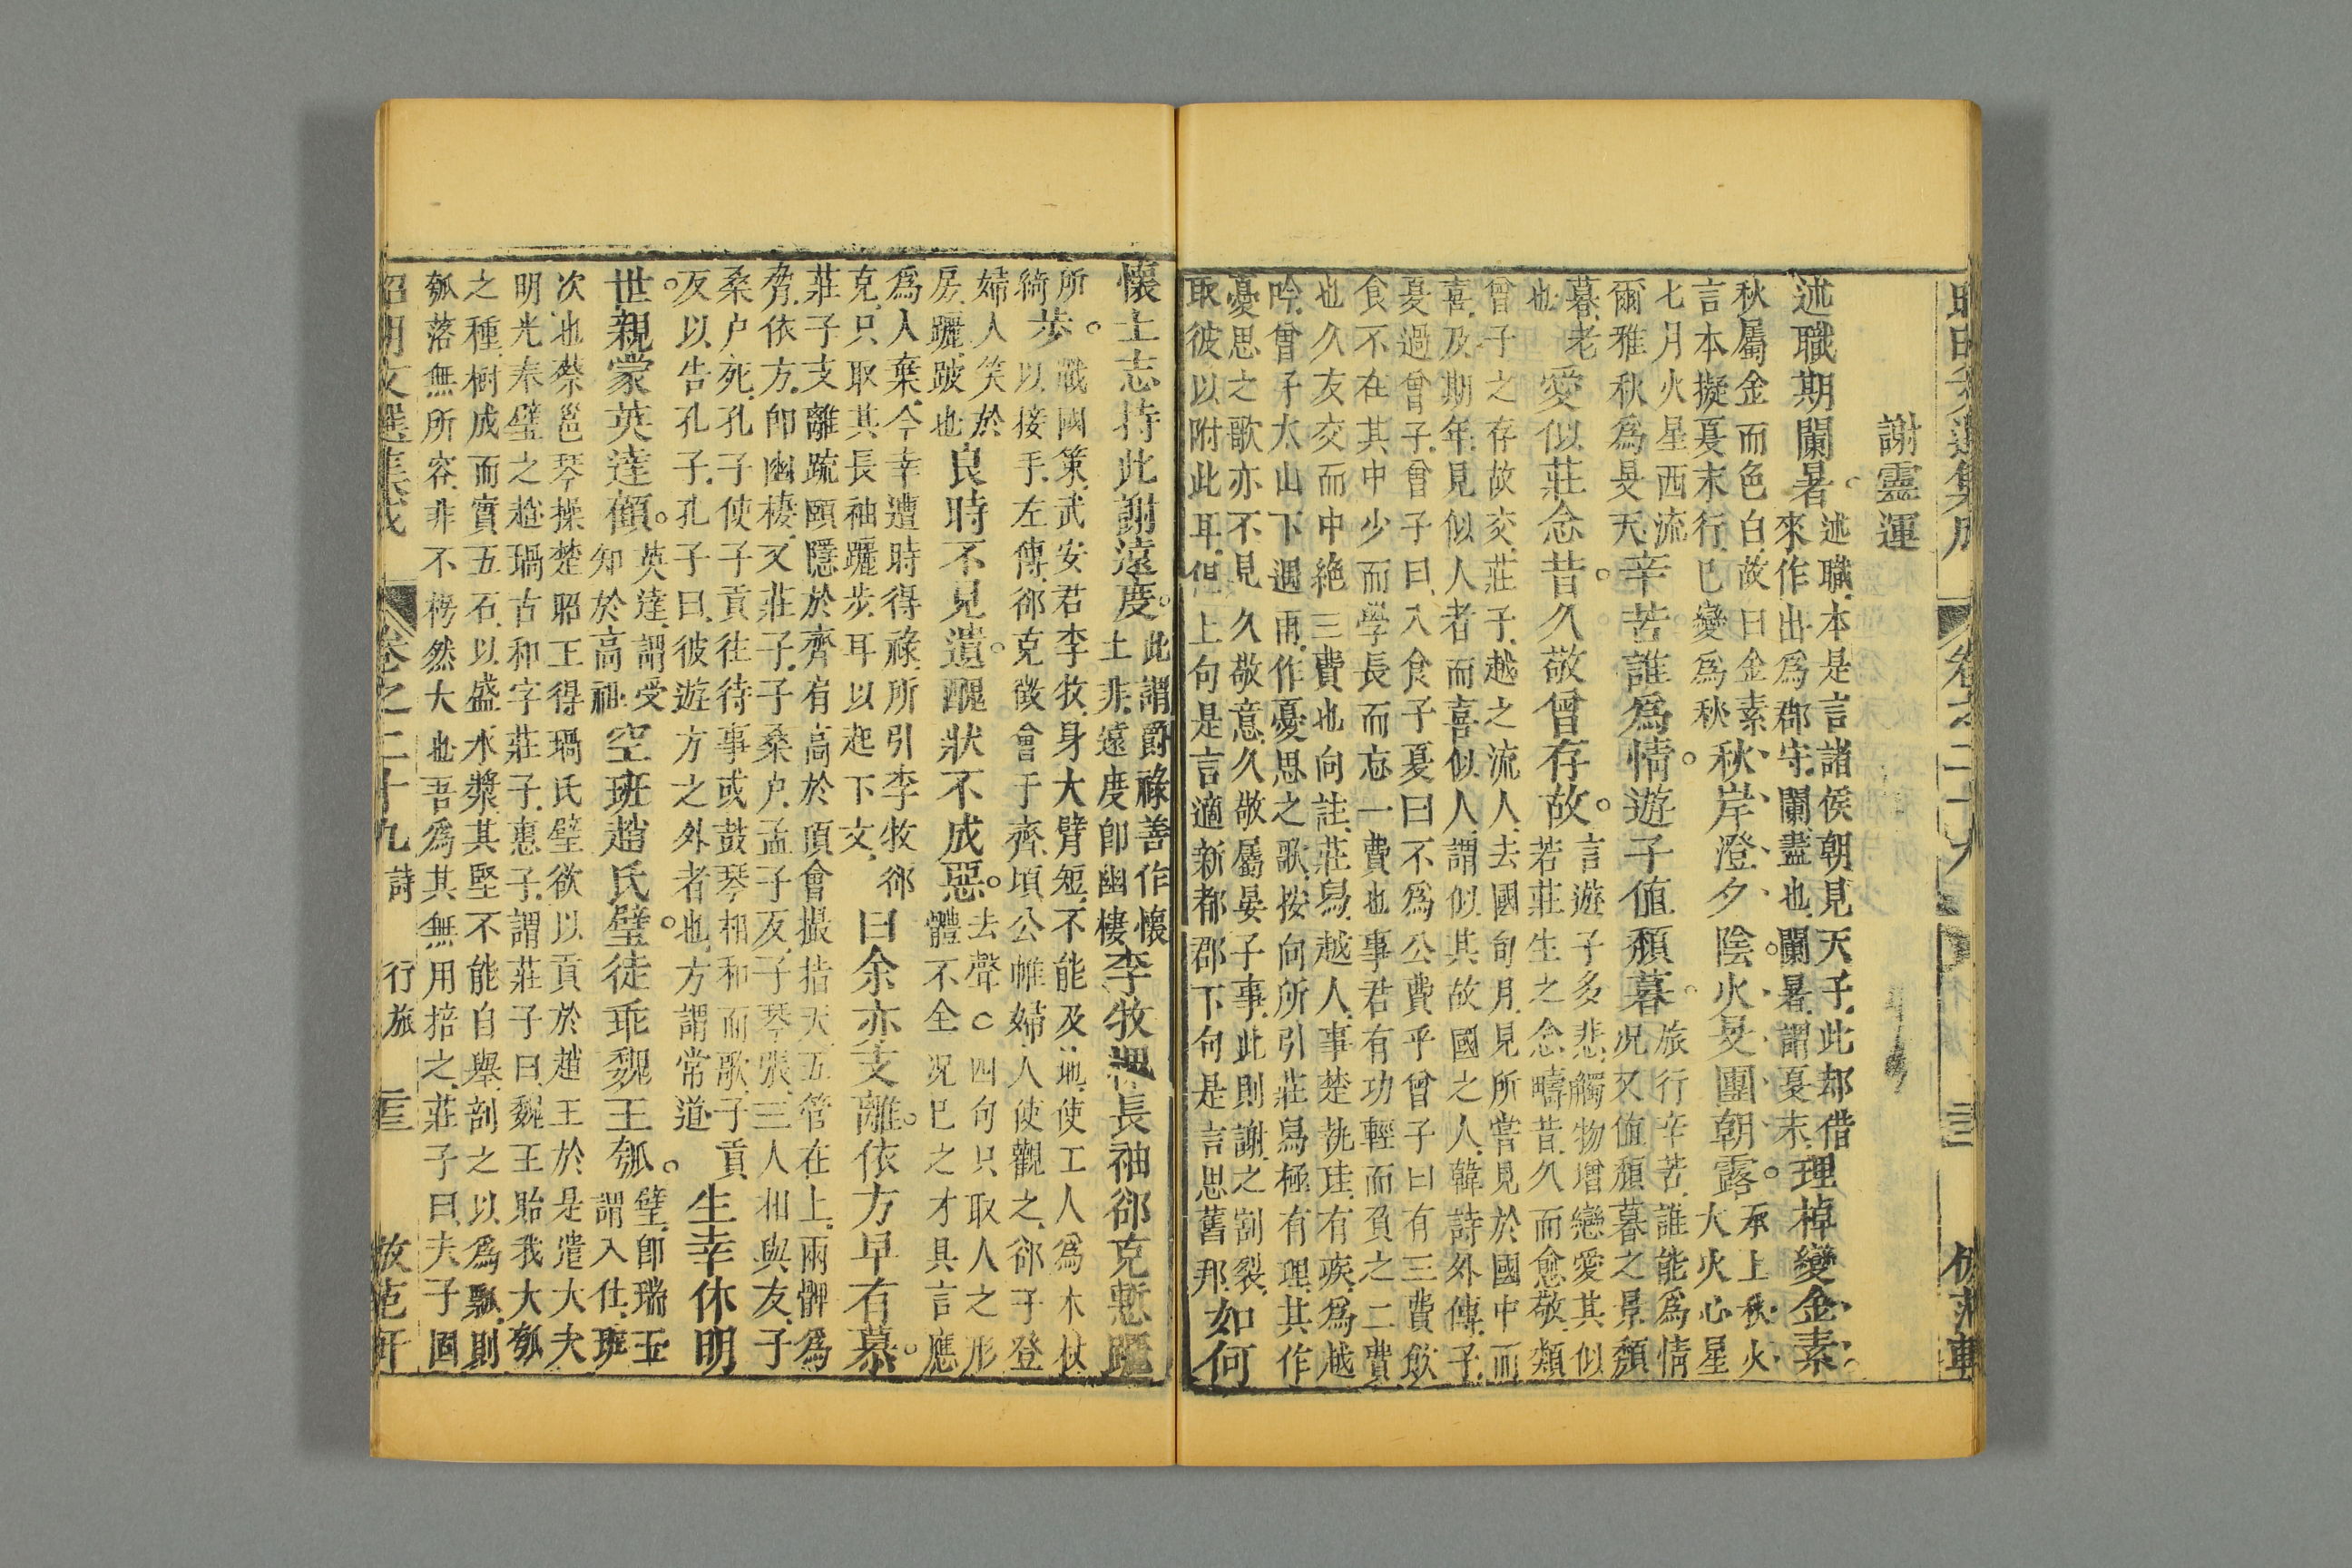 昭明文選集成 卷之二十九 三 倣范軒
謝靈運
述職期闌暑。
述職本是言諸侯朝見天子此却借
來作出為郡守闌盡也闌暑謂夏末
理棹變金素。
秋屬金而色白故曰金素
言本擬夏末行已變為秋
秋岸澄夕陰。火旻團朝露。
承上秋火
大火心星
七月火星西流
爾雅秋為旻天
辛苦誰為情。遊子值頹暮。
旅行辛苦誰能為情
况又值頹暮之景頹
暮老
也
愛似莊念昔。久敬曾存故。
言遊子多悲觸物增戀愛其似
若莊生之念疇昔久而愈敬類
曾子之存故交莊子越之流人去國旬月見所嘗見於國中而
喜及期年見似人者而喜似人謂似其故國之人韓詩外傳子
夏過曾子曾子曰入食子夏曰不為公費乎曾子曰有三費飲
食不在其中少而學長而忘一費也事君有功輕而負之二費
也久友交而中絶三費也向註莊舄越人事楚執珪有疾為越
吟曾子太山下遇雨作憂思之歌按向所引莊舄極有理其作
憂思之歌亦不見久敬意久敬屬晏子事此則謝之割裂
取彼以附此耳但上句是言適新都郡下句是言思舊邦
如何
懷土志持此謝遠度。
此謂爵祿善作懷
土非遠度即幽棲
李牧愧長袖郤克慙躧
所
綺
步。
戰國策武安君李牧身大臂短不能及地使工人為木杖
以接手左傳郤克徵會于齊頃公帷婦人使觀之郤子登
婦人笑於
房躧跛也
良時不見遺。醜狀不成惡。
去聲○四句只取人之形
體不全况已之才具言應
為人棄今幸遭時得祿所引李牧郤
克只取其長袖躧步耳以起下文
曰余亦支離。依方早有慕。
莊子支離疏頤隱於齊肩高於頂會撮指天五管在上兩髀為
脅依方即幽棲又莊子子桑户孟子反子琴張三人相與友子
桑户死孔子使子貢往待事或鼓琴相和而歌子貢
反以告孔子孔子曰彼遊方之外者也方謂常道
生幸休明
世。親蒙英逹顧。
英逹謂受
知於高祖
空班趙氏璧。徒乖魏王瓠。
璧即瑞玉
謂入仕班
次也蔡邕琴操楚昭王得瑦氏璧欲以貢於趙王於是遣大夫
明光奉璧之趙瑦古和字莊子惠子謂莊子曰魏王貽我大瓠
之種樹成而實五石以盛水漿其堅不能自舉剖之以為瓢則
瓠落無所容非不枵然大也吾為其無用掊之莊子曰夫子固
昭明文選集成 卷之二十九 詩 行旅 三 倣范軒